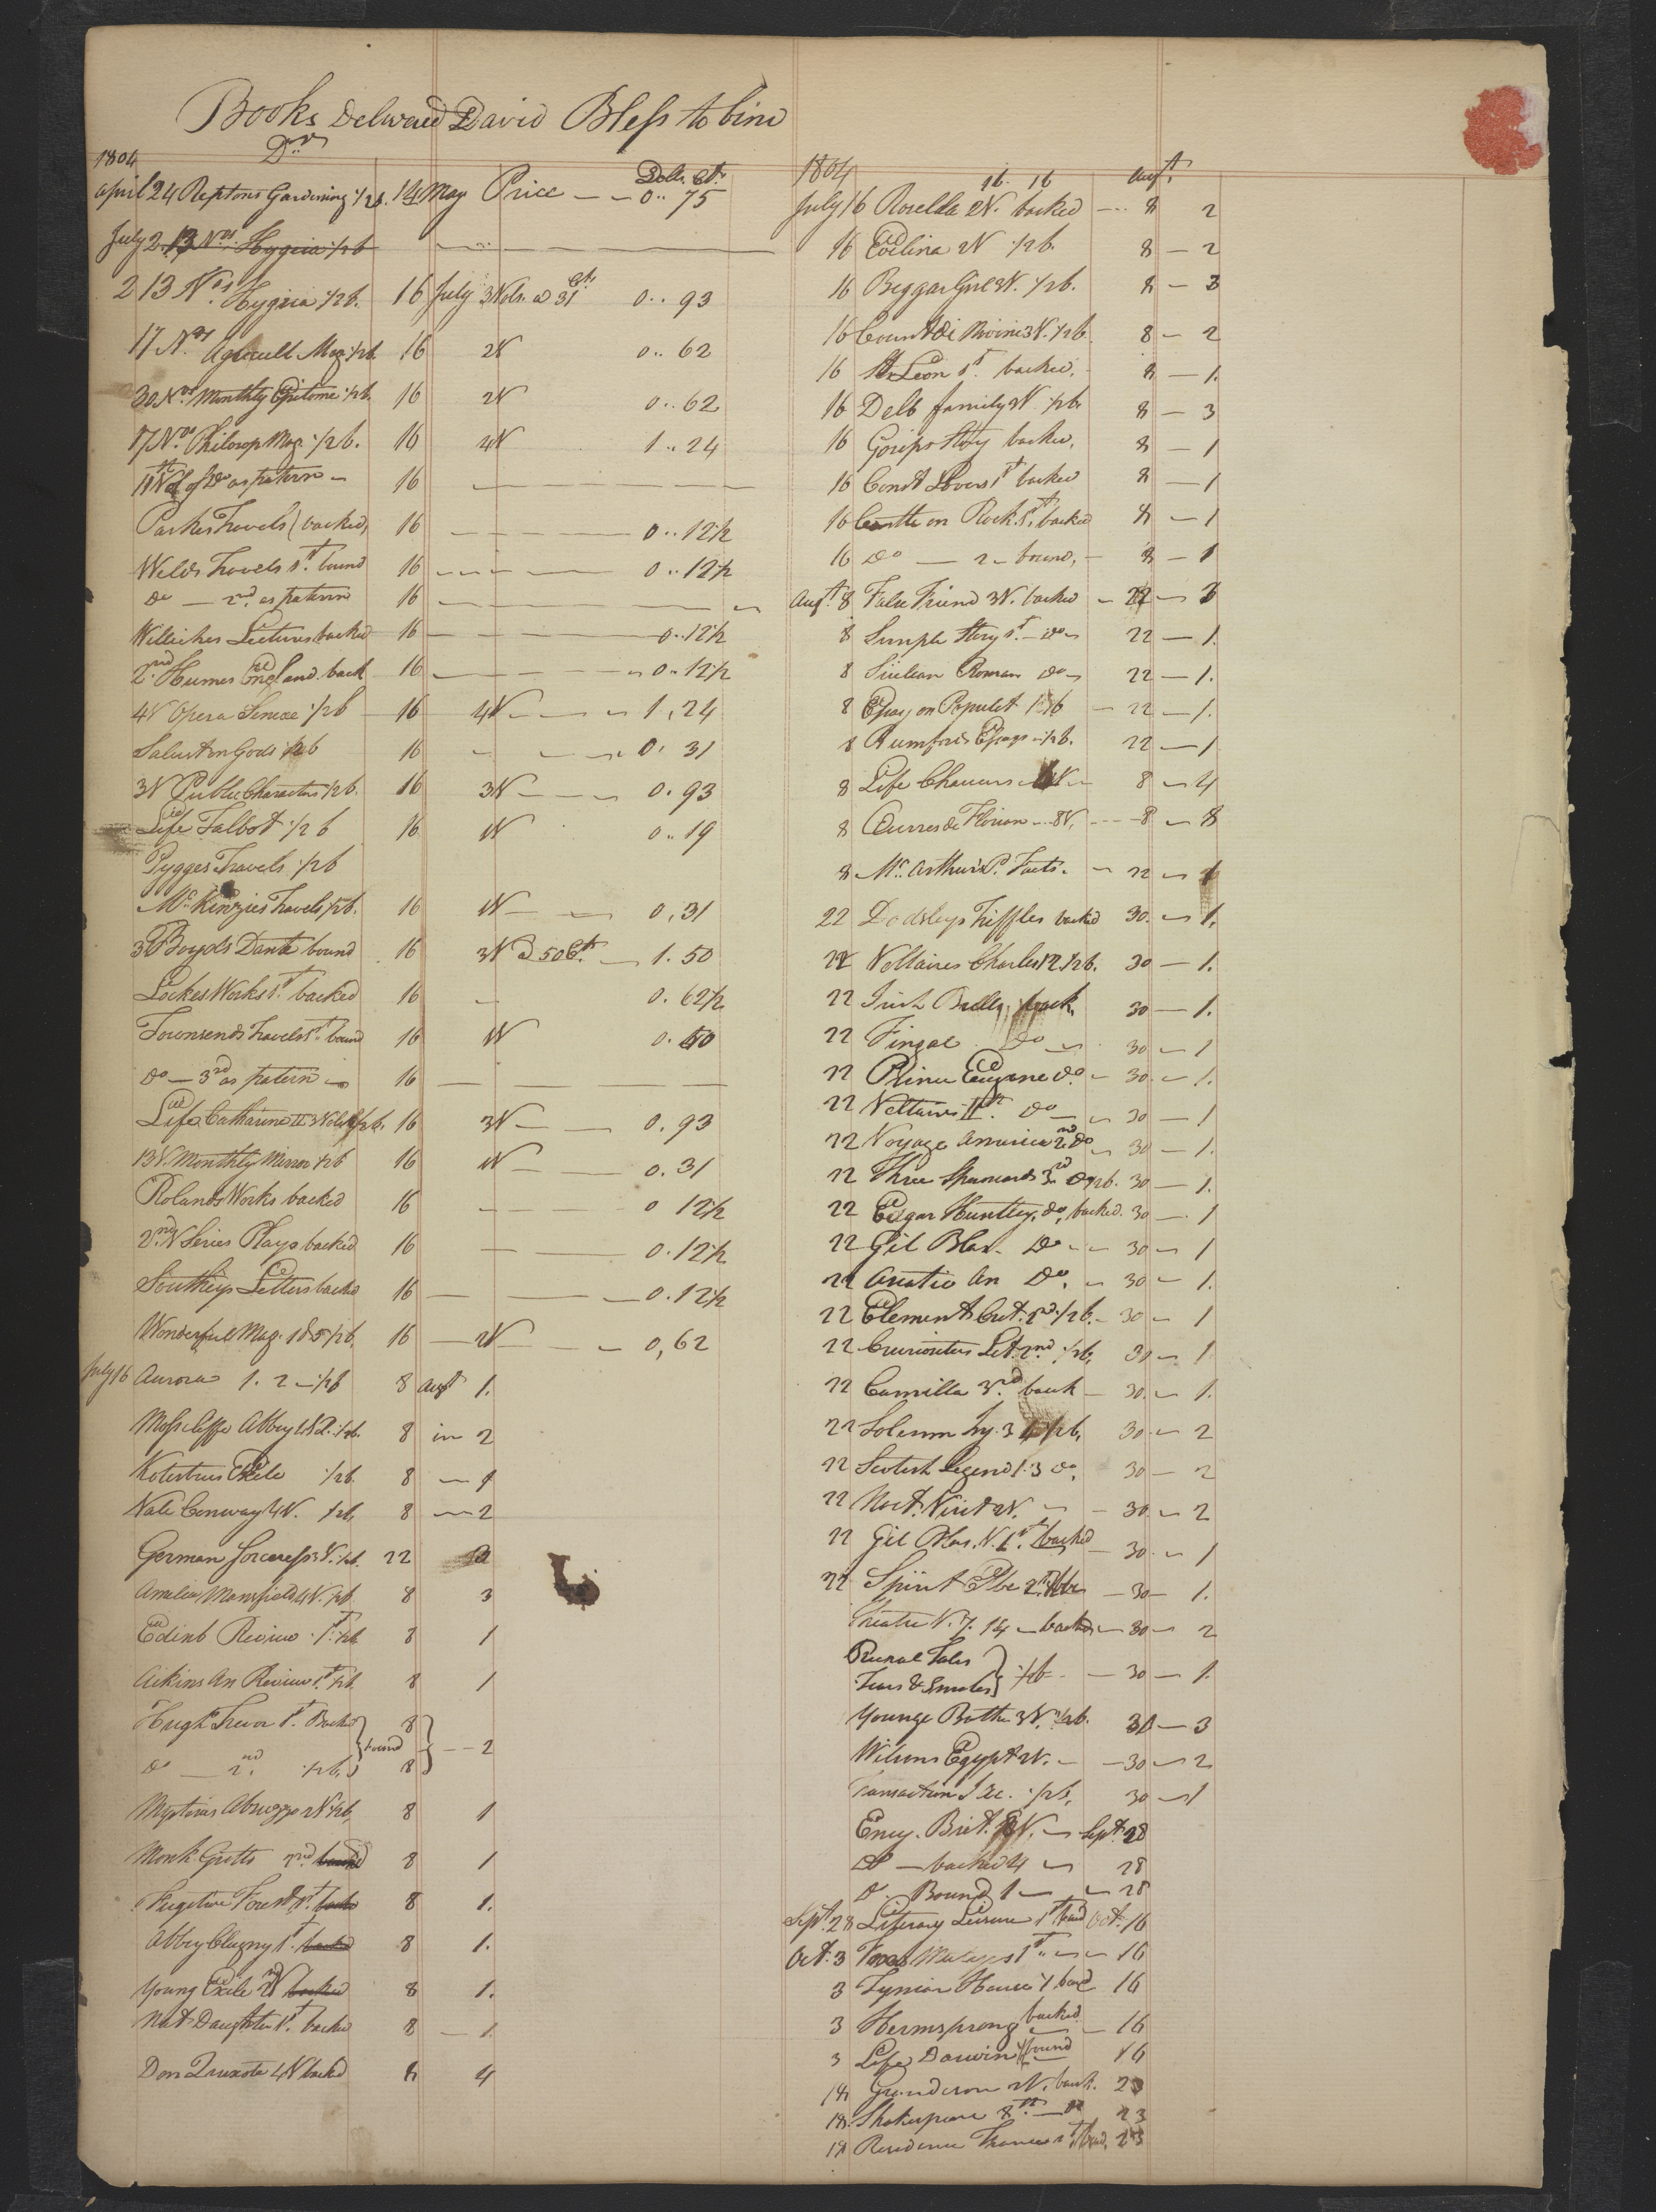 Books Delvered David Bless to bind
Dr.
1804
Dolls. Cts.
April 24 Reptons Gardening 1/2 b. 14 May Price — — 0.. 75
July 2 13 Nos. Hygeia 1/2 b
2 13 Nos. Hygeia 1/2 b. 16 July 3 Vols. @ 31 Cts. 0.. 93
17 Nos. Agricult Mag. 1/2 b. 16 2V 0.. 62
30 Nos. Monthly Epitome 1/2 b. 16 2V 0.. 62
17 Nos. Philosop Mag. 1/2 b. 16 4V 1.. 24
of Do as patern — 16
Parkes Travels (backed) 16 — — — 0.. 12 1/2
Welds Travels 1st. bound 16 — — — 0.. 12 1/2
Do — 2nd. as patern 16
Willichs Lectures backed 16 — — — 0.. 12 1/2
2nd Humes England back 16 — — — 0.. 12 1/2
4V Opera Senicae 1/2 b 16 4V — — 1, 24
Salust on Gods 1/2 b 16 — — 0. 31
3V Public Characters 1/2 b. 16 3V — — 0. 93
Life Talbot 1/2 b 16 1V 0.. 19
Pygges Travels 1/2 b
McKinzies Travels 1/2 b. 16 1V — — 0, 31
3 Boyds Dante bound 16 3V @ 50 Cts. — 1. 50
Lockes Works 1st. backed 16 — 0. 62 1/2
Townsends Travels 1st. bound 16 1V 0. 50
Do — 3rd as patern — 16 — — — —
Life Catharine II 3 Vols 1/2 b. 16 3V — — 0. 93
13 V. Monthly Mirror 1/2 b 16 1V — — 0. 31
Rolands Works backed 16 — — — 0 12 1/2
2nd. V Series Plays backed 16 — — 0. 12 1/2
Southeys Letters backd 16 — — — 0. 12 1/2
Wonderful Mag. 1 & 5 1/2 b. 16 — 2V — — 0, 62
July 16 Aurora 1. 2 — 1/2 b 8 Augt 1.
Abbey 1 & 2. 1/2 b. 8 in 2
Exile 1/2 b. 8 — 1
Vale Conway 4V. 1/2 b. 8 — 2
German Sorceress V. 1/2 b. 22 2
Amelia Mansfield 4V. 1/2 b 8 3
Edinb Review 1st. 1/2 b. 8 1
Aikins An Review 1st. 1/2 b. 8 1
Hugh Trevor 1st. Backd } bound 8 } — 2
Do — 2nd. 1/2 b. 8
Abruzzo 2V 1/2 b. 8 1
Monk Grotto 2nd backed 8 1
Fugitive Forest 1st. backd 8 1.
Abbey Clugny 1st. backed 8 1.
Young Exile 2nd V backed 8 1.
Nat Daughter 1st. backed 8 — 1
Don Quixote 4V backd 8 4
1804 16. 16 Augt.
July 16 Rosella 2V. backed — 8 2
16 Evelina 2V 1/2 b. 8 — 2
16 Beggar Girl 3V. 1/2 b. 8 — 3
16 Count di Novini 3V. 1/2 b. 8 — 2
16 St. Leon 1st. backed. 8 — 1.
16 Delb family 3V 1/2 b. 8 — 3
16 Gosips Story backed. 8 — 1
16 Const Lovers 1st backed 8 — 1
16 Castle on Rock 1st. backed 8 — 1
16 Do — 2 — bound, — 8 — 1
Augt. 8 False Friend 3V. backed — 22 — 3
8 Simple Story 1st. — Do — 22 — 1.
8 Sicilean Roman Do — 22 — 1.
8 Essay on Populat 1/2 b — 22 — 1.
8 Rumfords Essays — 1/2 b. 22 — 1
8 Life Chaucers 4V — 8 — 4
8 Ouvres de Florian — 8V. — — 8 — 8
8 Mc. Arthurs P. Facts. — 22 — 1
22 Dodsleys Triffles backed 30. — 1.
22 Voltaires Charles 12. 1/2 b. 30 — 1.
22 Irish Bulls, back. 30 — 1.
22 Fingal Do — 30 — 1
22 Prince Eugene Do. — 30. — 1.
22 Voltaires 11th. Do — 30 — 1
22 Voyage America 2nd. Do — 30 — 1.
22 Three Spaniards 3rd. 1/2 b. 30 — 1.
22 Edgar Huntley, Do, backed. 30 — 1
22 Gil Blas. Do — — 30 — 1
22 Asiatic An Do. — 30 — 1.
22 Elements Crit. 2nd. 1/2 b. — 30 — 1
22 Curiosities Lit. 2nd. 1/2 b. 30 — 1
22 Camilla 3rd. back — 30. — 1.
22 Solemn Inj. 3 4 1/2 b. 30 — 2
22 Scotish Legend 1. 3 Do. 30 — 2
22 Noct. Visit 2V. — — 30. — 2
22 Gil Blas. V. 1st. backed — 30. — 1
22 Spirit Elbe 2nd. 1/2 b — 30 — 1.
Theatre V. 7. 14 — backd — 30 — 2
Rural Tales } 1/2 b — — 30 — 1.
Tears & Smiles
Younge Bothr 3V. 1/2 b. 30 — 3
Wilsons Egypt 2V. — — 30 — 2
Transaction Soc. 1/2 b. 30 — 1
Ency. Brit. 8V. — Sept. 28
Do — backed 4 — 28
Do. Bound 1 — — 28
Sept. 28 Literary Leisure 1st bound Oct. 16
Oct. 3 1st — — 16
3 Tynian House 1 back 16
3 Hermsprong backed — 16
3 Life Darwin bound 16
18 Grandison 2V. back. 23
18 Shakespeare 8th. — Do 23
18 Residence France 1st. bound. 23